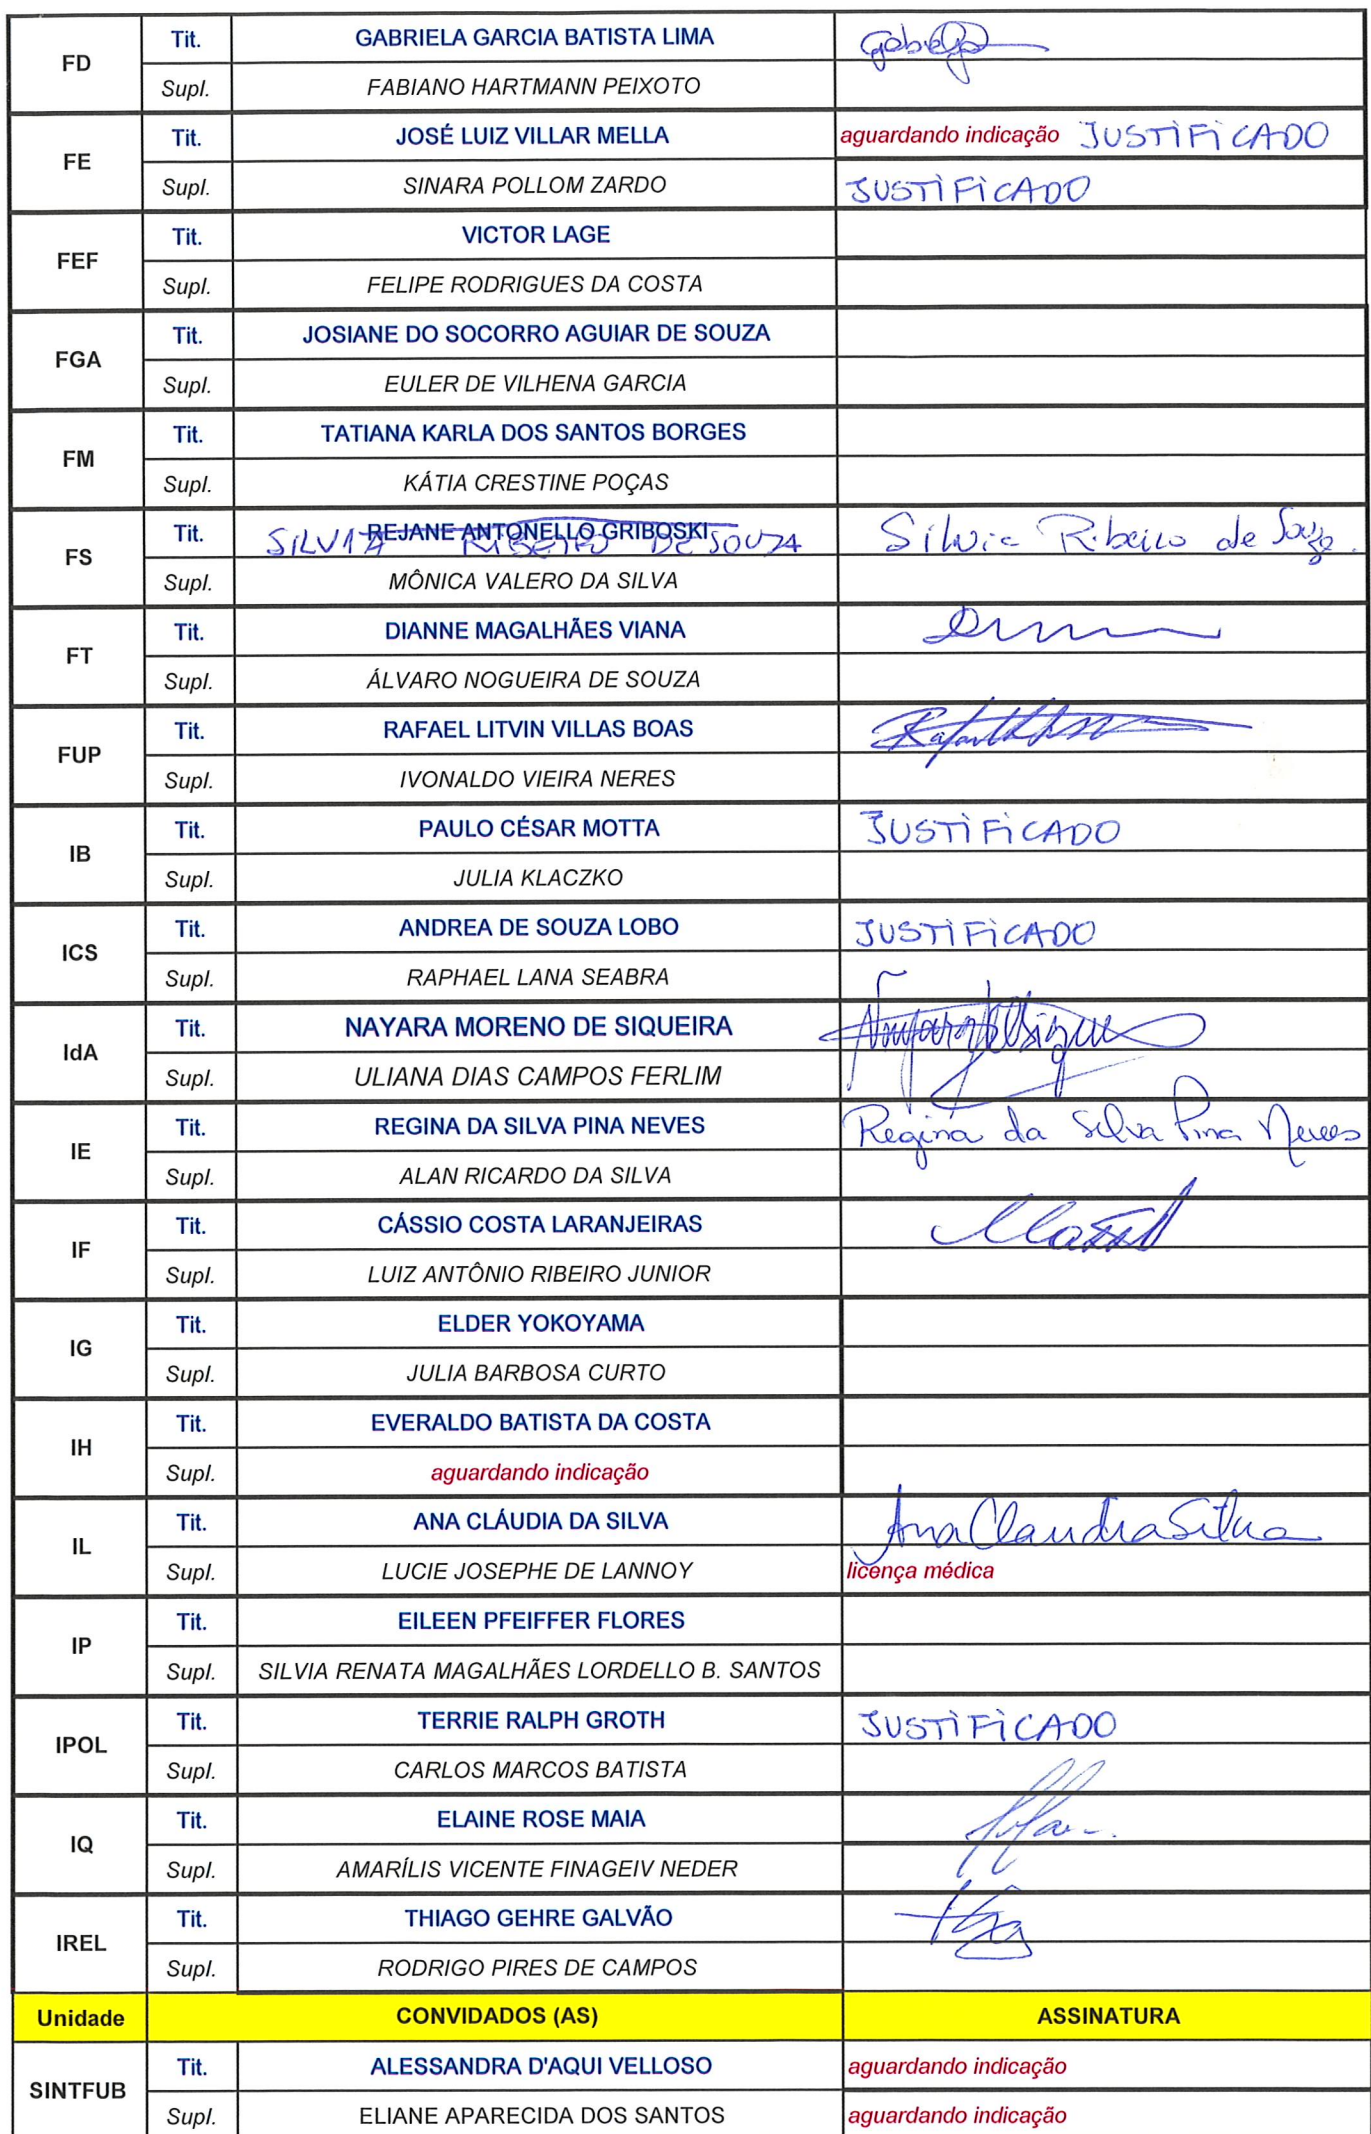 FD Tit. GABRIELA GARCIA BATISTA LIMA
Supl. FABIANO HARTMANN PEIXOTO
FE Tit. JOSÉ LUIZ VILLAR MELLA aguardando indicação JUSTIFICADO
Supl. SINARA POLLOM ZARDO JUSTIFICADO
FEF Tit. VICTOR LAGE
Supl. FELIPE RODRIGUES DA COSTA
FGA Tit. JOSIANE DO SOCORRO AGUIAR DE SOUZA
Supl. EULER DE VILHENA GARCIA
FM Tit. TATIANA KARLA DOS SANTOS BORGES
Supl. KÁTIA CRESTINE POÇAS
FS Tit. REJANE ANTONELLO GRIBOSKI SILVIA RIBEIRO DE SOUZA Silvia Ribeiro de Souza
Supl. MÔNICA VALERO DA SILVA
FT Tit. DIANNE MAGALHÃES VIANA
Supl. ÁLVARO NOGUEIRA DE SOUZA
FUP Tit. RAFAEL LITVIN VILLAS BOAS
Supl. IVONALDO VIEIRA NERES
IB Tit. PAULO CÉSAR MOTTA JUSTIFICADO
Supl. JULIA KLACZKO
ICS Tit. ANDREA DE SOUZA LOBO JUSTIFICADO
Supl. RAPHAEL LANA SEABRA
IdA Tit. NAYARA MORENO DE SIQUEIRA
Supl. ULIANA DIAS CAMPOS FERLIM
IE Tit. REGINA DA SILVA PINA NEVES Regina da Silva Pina Neves
Supl. ALAN RICARDO DA SILVA
IF Tit. CÁSSIO COSTA LARANJEIRAS
Supl. LUIZ ANTÔNIO RIBEIRO JUNIOR
IG Tit. ELDER YOKOYAMA
Supl. JULIA BARBOSA CURTO
IH Tit. EVERALDO BATISTA DA COSTA
Supl. aguardando indicação
IL Tit. ANA CLÁUDIA DA SILVA Ana Claudia Silva
Supl. LUCIE JOSEPHE DE LANNOY licença médica
IP Tit. EILEEN PFEIFFER FLORES
Supl. SILVIA RENATA MAGALHÃES LORDELLO B. SANTOS
IPOL Tit. TERRIE RALPH GROTH JUSTIFICADO
Supl. CARLOS MARCOS BATISTA
IQ Tit. ELAINE ROSE MAIA
Supl. AMARÍLIS VICENTE FINAGEIV NEDER
IREL Tit. THIAGO GEHRE GALVÃO
Supl. RODRIGO PIRES DE CAMPOS
Unidade CONVIDADOS (AS) ASSINATURA
SINTFUB Tit. ALESSANDRA D'AQUI VELLOSO aguardando indicação
Supl. ELIANE APARECIDA DOS SANTOS aguardando indicação